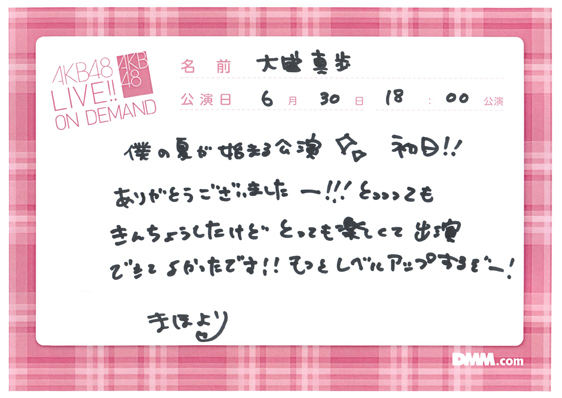 AKB48
LIVE!!
ON DEMAND
AKB
48
名前 大盛真歩
公演日 6月30日 18:00公演
僕の夏が始まる公演 初日!!
ありがとうございましたー!!! とっっっても
きんちょうしたけど とっても楽しくて 出演
できて よかったです!! もっと レベルアップするぞー!
まほより
DMM.com